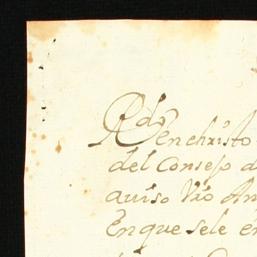 Rdo
en christo
del Consejo d
auiso Vro An
En que se le en